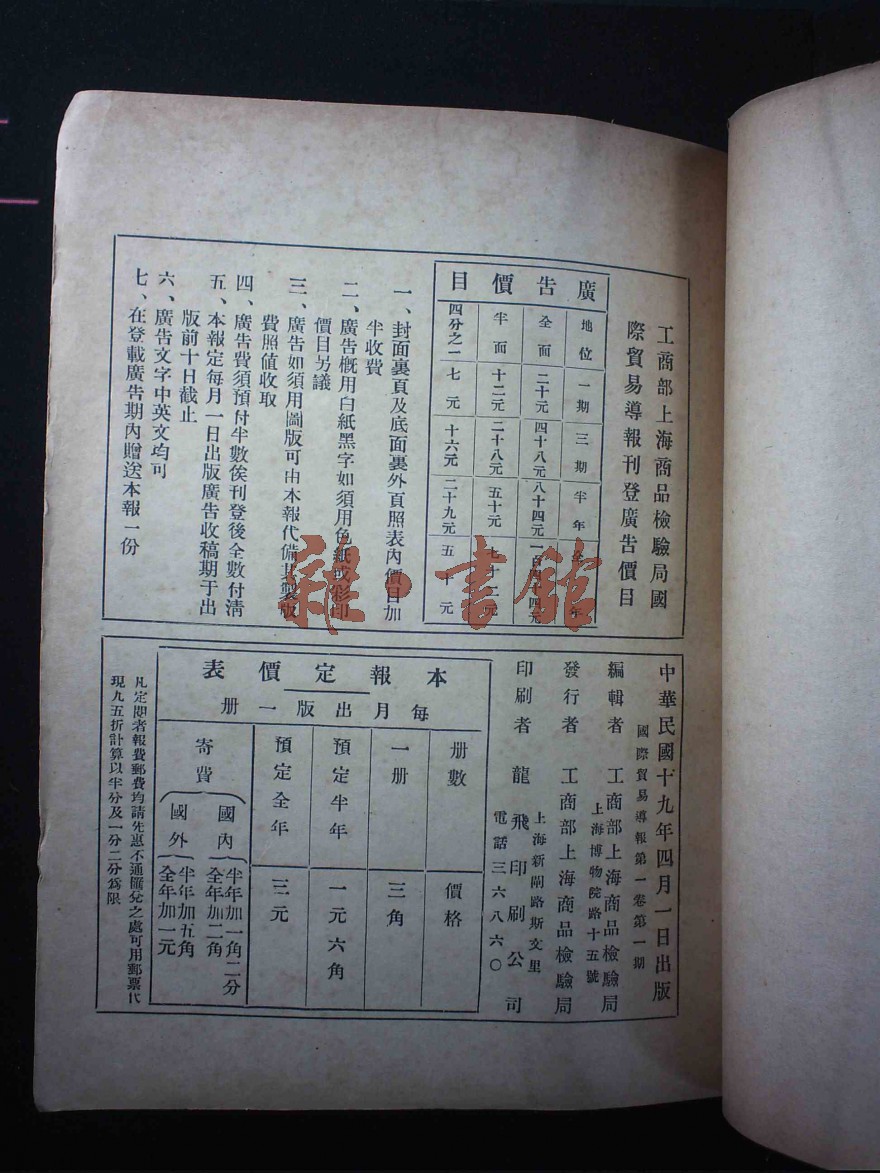 工商部上海商品檢驗局國
際貿易導報刊登廣告價目
廣告價目
地位 一期 三期 半年 全年
全面 二十元 四十八元 八十四元 一百四十四元
半面 十二元 二十八元 五十元
四分之一 七元 十六元 二十九元
一、封面裏頁及底面裏外頁照表內價目加
半收費
二、廣告概用白紙黑字如須用色紙或彩印
價目另議
三、廣告如須用圖版可由本報代備其製版
費照値收取
四、廣告費須預付半數俟刊登後全數付清
五、本報定每月一日出版廣告收稿期于出
版前十日截止
六、廣告文字中英文均可
七、在登載廣告期內贈送本報一份
中華民國十九年四月一日出版
國際貿易導報第一卷第一期
編輯者 工商部上海商品檢驗局
上海博物院路十五號
發行者 工商部上海商品檢驗局
印刷者 龍飛印刷公司
上海新閘路斯文里
電話三六八六〇
本報定價表
每月出版一册
册數 價格
一册 三角
預定半年 一元六角
預定全年 三元
寄費
國內 半年加一角二分
全年加二角
國外 半年加五角
全年加一元
凡定閱者報費郵費均請先惠不通匯兌之處可用郵票代
現九五折計算以半分及一分二分爲限
雜·書館